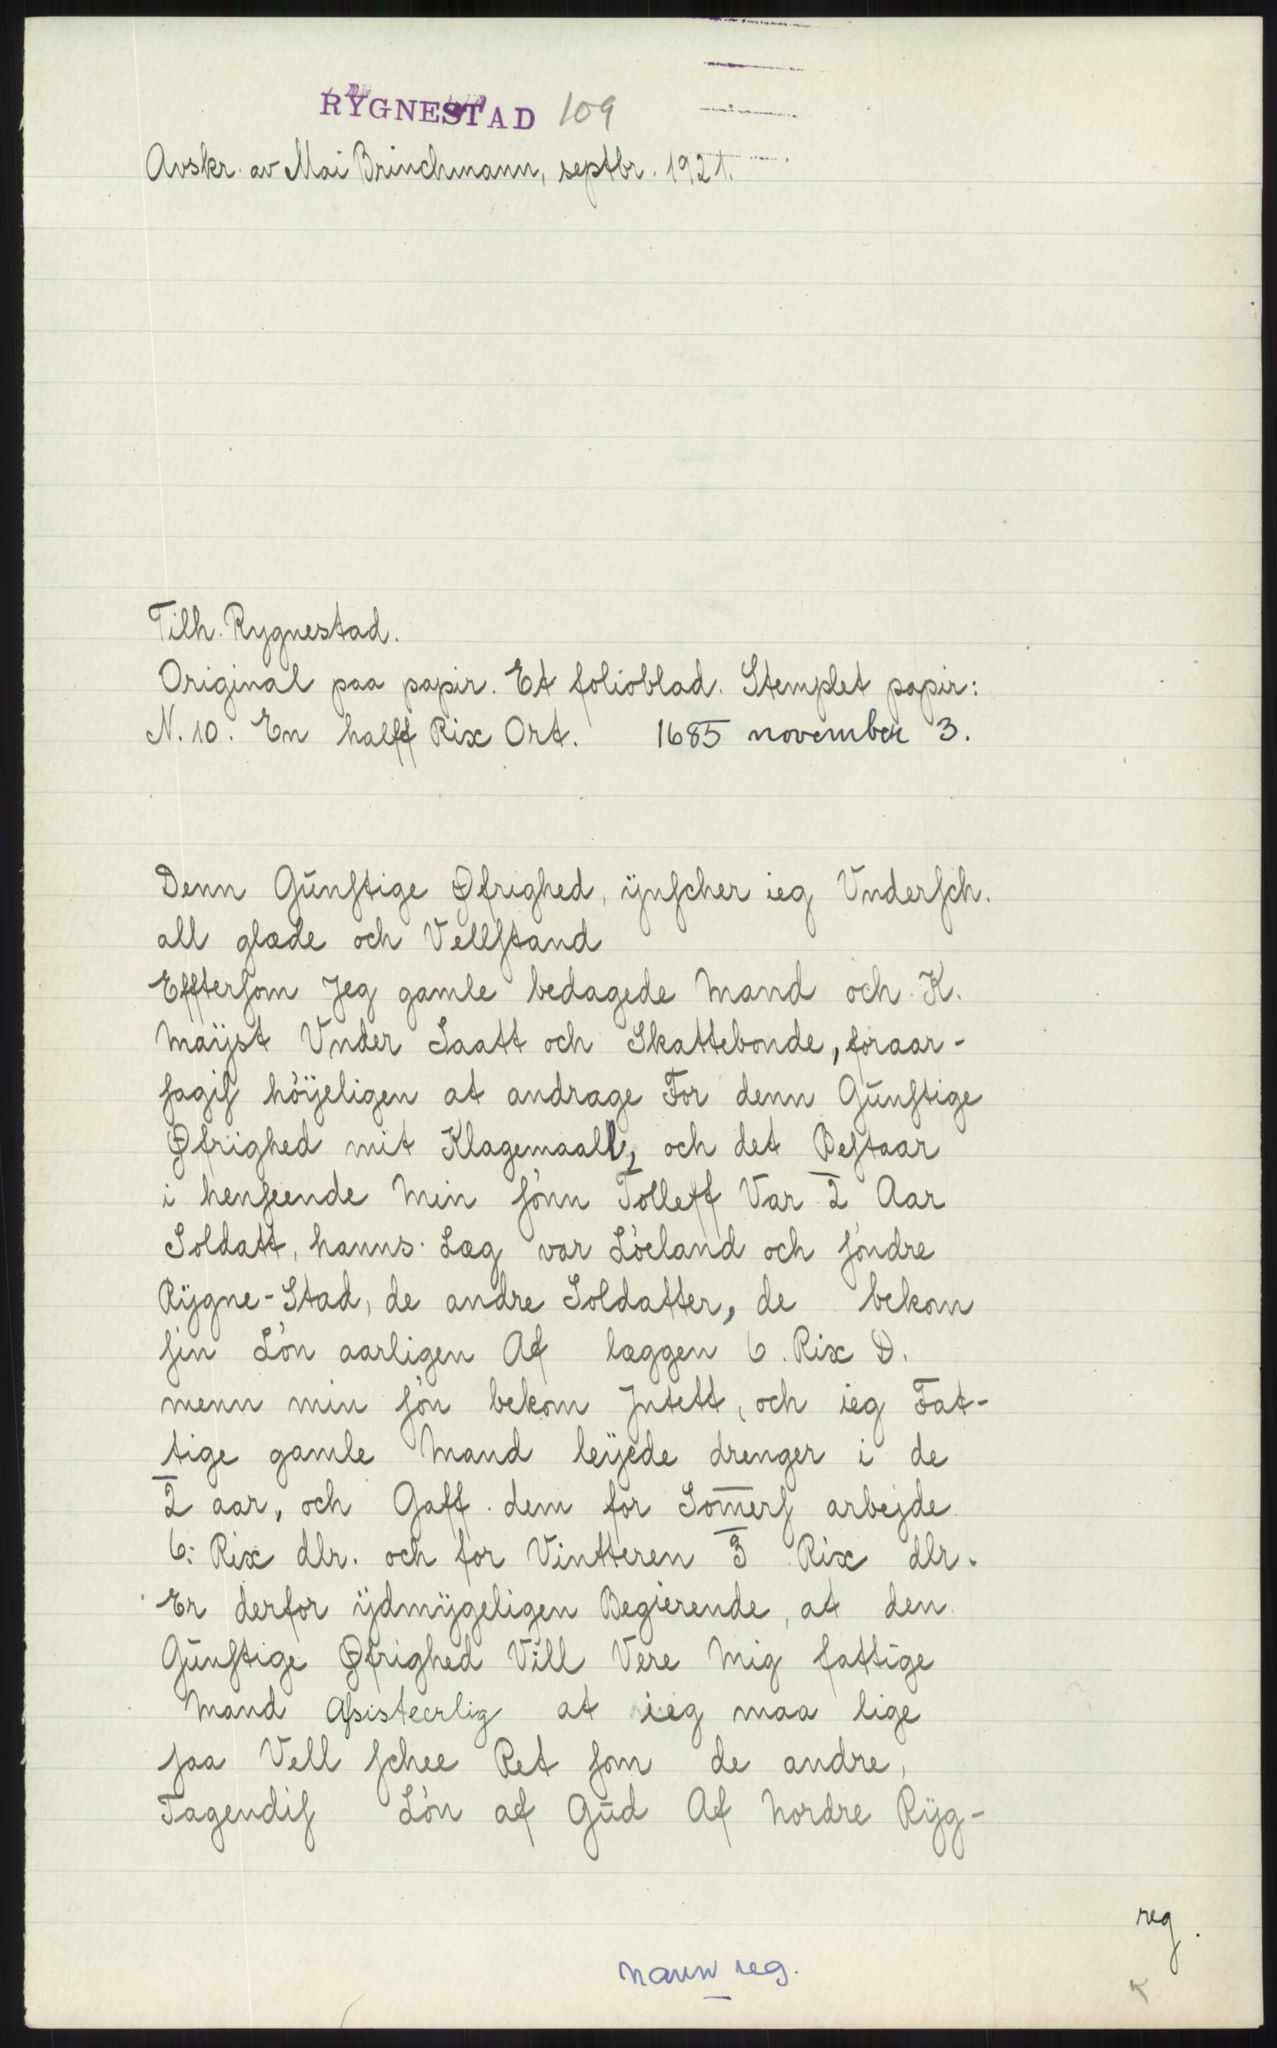 RYGNESTAD 109
Avskr. av Mai Brinchmann, septbr. 1921.
Tilh. Rygnestad.
Original paa papir. Et folioblad. Stemplet papir:
N. 10. En halff Rix Ort. 1685 november 3.
Denn Gunſtige Øfrighed, ÿnſcher ieg Vnderſch.
all glæde och Vellſtand
Effterſom Jeg gamle bedagede Mand och K.
Maÿst Vnder Saatt och Skattebonde, foraar-
ſagiſ höÿeligen at andrage For denn Gunſtige
Øfrighed mit Klagemaall, och det Beſtaar
i henſeende Min ſönn Tolleff Var 2 Aar
Soldatt, hanns Læg var Löeland och ſöndre
Rÿgne-Stad, de andre Soldatter, de bekom
ſin Lön aarligen Af læggen 6. Rix D.
menn min ſön bekom Jntett, och ieg Fat-
tige gamle Mand leÿede drenger i de
2 aar, och Gaff dem for Som̄erſ arbejde
6: Rix dlr. och for Vintteren 3 Rix dlr.
Er derfor ÿdmÿgeligen Begierende, at den
Gunſtige Øfrighed Vill Vere Mig fattige
Mand aſsisteerlig at ieg maa lige
ſaa Vell ſchee Ret ſom de andre,
Tagendiſ Lön af Gud Af Nordre Rÿg-
reg.
navn reg.